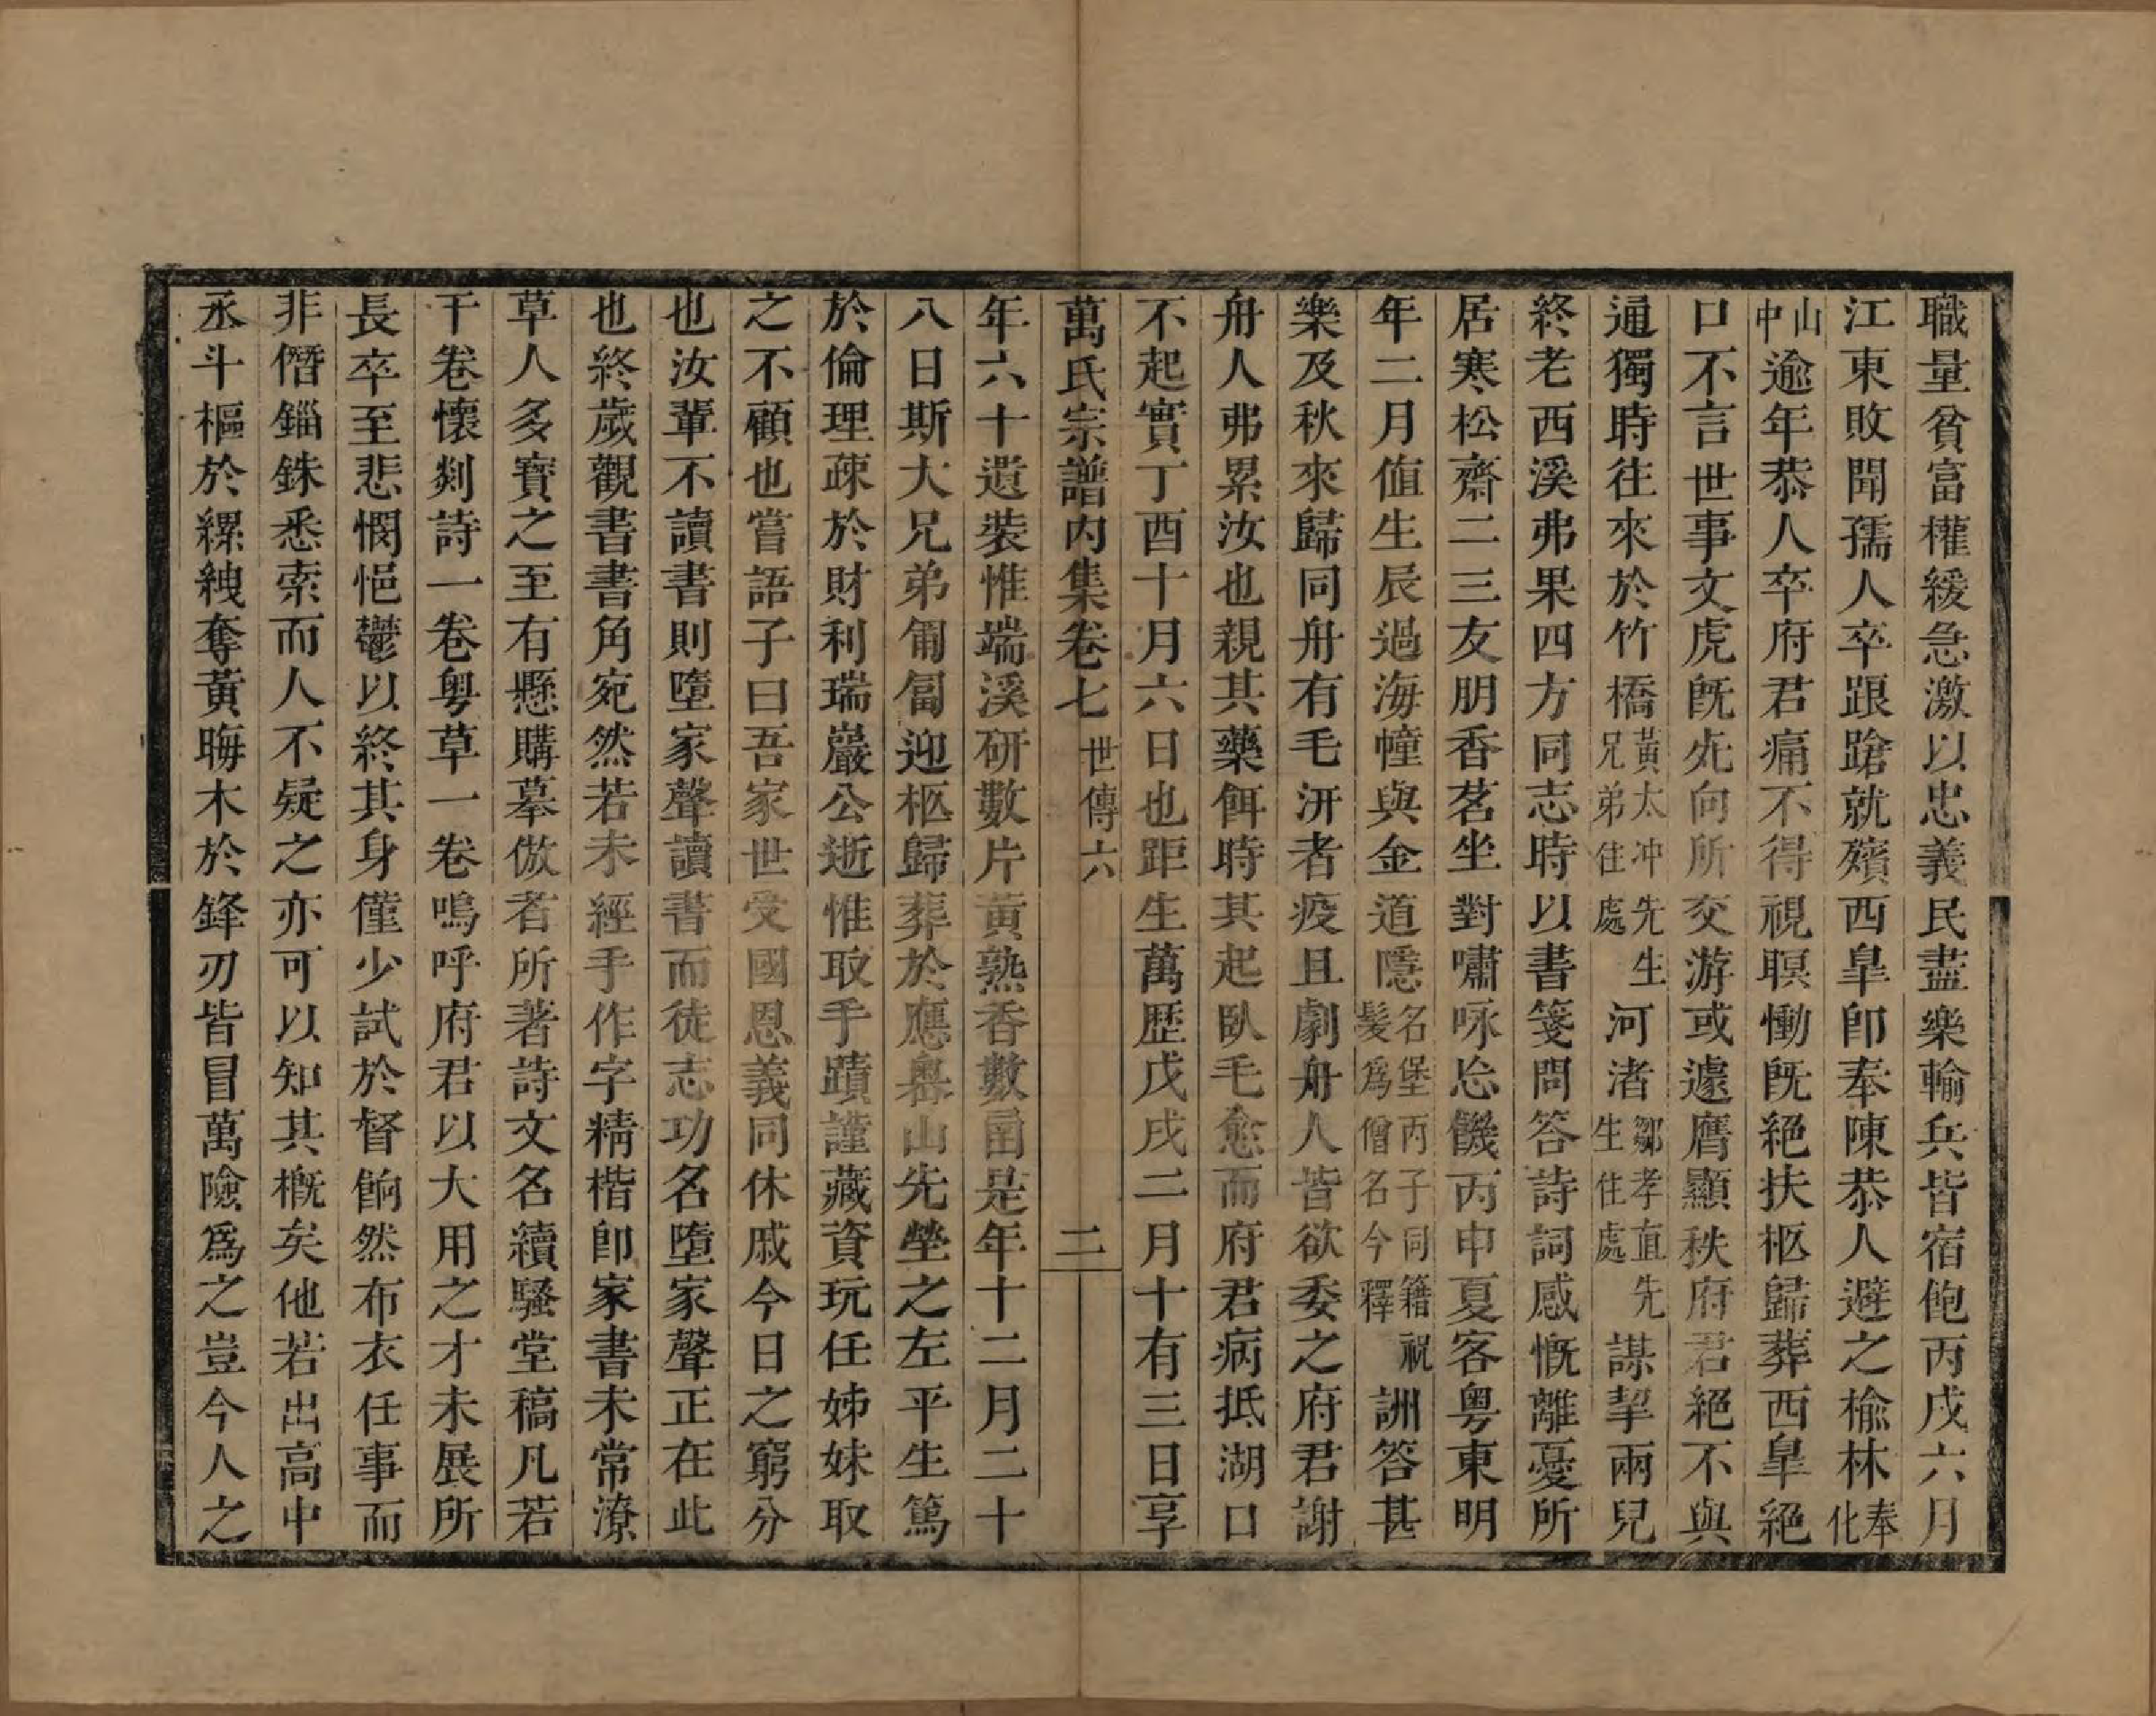 職量貧富權緩急激以忠義民盡樂輸兵皆宿飽丙戌六月
江東敗聞孺人卒踉蹌就殯西臯卽奉陳恭人避之榆林奉化
山中逾年恭人卒府君痛不得視瞑慟旣絕扶柩歸葬西臯絕
口不言世事文虎旣先向所交游或遽膺顯秩府君絕不與
通獨時往來於竹橋黃太冲先生兄弟住處河渚鄒孝直先生住處謀挈兩兒
終老西溪弗果四方同志時以書箋問答詩詞感慨離憂所
居寒松齋二三友朋香茗坐對嘯咏忘饑丙申夏客粵東明
年二月値生辰過海幢與金道隱名堡丙子同籍祝髮爲僧名今釋詶答甚
樂及秋來歸同舟有毛汧者疫且劇舟人皆欲委之府君謝
舟人弗累汝也親其藥餌時其起臥毛愈而府君病抵湖口
不起實丁酉十月六日也距生萬歷戊戌二月十有三日享
萬氏宗譜內集卷七 世傳六 二
年六十遺裝惟端溪研數片黃熟香數匣是年十二月二十
八日斯大兄弟匍匐迎柩歸葬於應嶴山先塋之左平生篤
於倫理疎於財利瑞巖公逝惟取手蹟謹藏資玩任姊妹取
之不顧也嘗語子曰吾家世受國恩義同休戚今日之窮分
也汝輩不讀書則墮家聲讀書而徒志功名墮家聲正在此
也終歲觀書書角宛然若未經手作字精楷卽家書未常潦
草人多寶之至有懸購摹倣者所著詩文名續騷堂稿凡若
干卷懷剡詩一卷粵草一卷嗚呼府君以大用之才未展所
長卒至悲憫悒鬱以終其身僅少試於督餉然布衣任事而
非僭錙銖悉索而人不疑之亦可以知其槪矣他若出高中
丞斗樞於縲絏奪黃晦木於鋒刃皆冒萬險爲之豈今人之